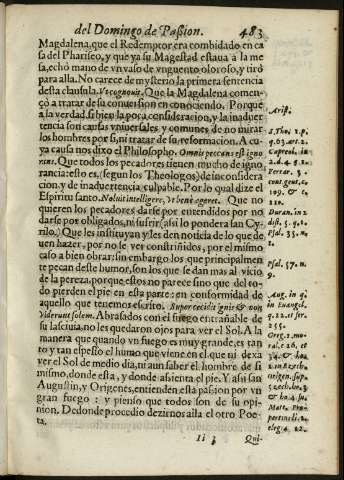 del Domingo de Paſsion. 483
Magdalena, que el Redemptor era combidado en ca
ſa del Phariſeo, y que ya ſu Mageſtad eſtaua á la me
ſa, echó mano de vn vaſo de vnguento oloroſo, y tiró
para alla. No carece de myſterio la primera sentencia
deſta clauſula. Vt cognouit. Que la Magdalena comen-
çó a tratar de ſu conuerſion en conociendo. Porque
a la verdad, ſi bien la poca conſideracion, y la inaduer
tencia ſon cauſas vniuerſales, y comunes de no mirar
los hombres por ſi, ni tratar de ſu reformacion. A cu-
ya cauſa nos dixo el Philoſopho. Omnis peccans eſt igno
rans. Que todos los pecadores tienen mucho de igno
rancia: eſto es, (ſegun los Theologos) de inconſidera
cion, y de inaduertencia culpable. Por lo qual dize el
Eſpiritu ſanto. Noluit intelligere, vt bene ageret. Que no
quieren los pecadores darſe por entendidos por no
darſe por obligados, ni ſufrir (aſsi lo pondera ſan Cy-
rilo.) Que les inſtituyan y les den noticia de lo que de
uen hazer, por no ſe ver conſtriñidos, por el miſmo
caſo a bien obrar: ſin embargo los que principalmen
te pecan deſte humor, ſon los que ſe dan mas al vicio
de la pereza, porque eſtos no parece ſino que del to-
do pierden el pie en eſta parte: en conformidad de
aquello que tenemos eſcrito. Super cecidit ignis & non
viderunt ſolem. Abraſados con el fuego entrañable de
ſu laſciuia, no les quedaron ojos para ver el Sol. A la
manera que quando vn fuego es muy grande, es tan
to y tan eſpeſſo el humo que viene en el, que ni dexa
ver el Sol de medio dia, ni aun ſaber el hombre de ſi
miſmo, donde eſta, y donde aſsienta el pie. Y aſsi ſan
Auguſtin, y Origenes, entienden eſta paſsion por vn
gran fuego: y pienſo que todos ſon de ſu opi-
nion. De donde procedio dezirnos alla el otro Poe-
ta.
Ii 3 Qui-
Ariſt.
S. Tho. 1. p.
q. 63. art. 2.
Capreol. in
2. d. 4. q. 2.
Ferrar. 3.
cont. gent. c.
109. & c.
110.
Duran. in 2
diſt. 5. q. 1.
Pſal. 35. n.
2.
Pſal. 57. n.
9.
Aug. in q.
Euangelh.
q. 22. et ſer.
255.